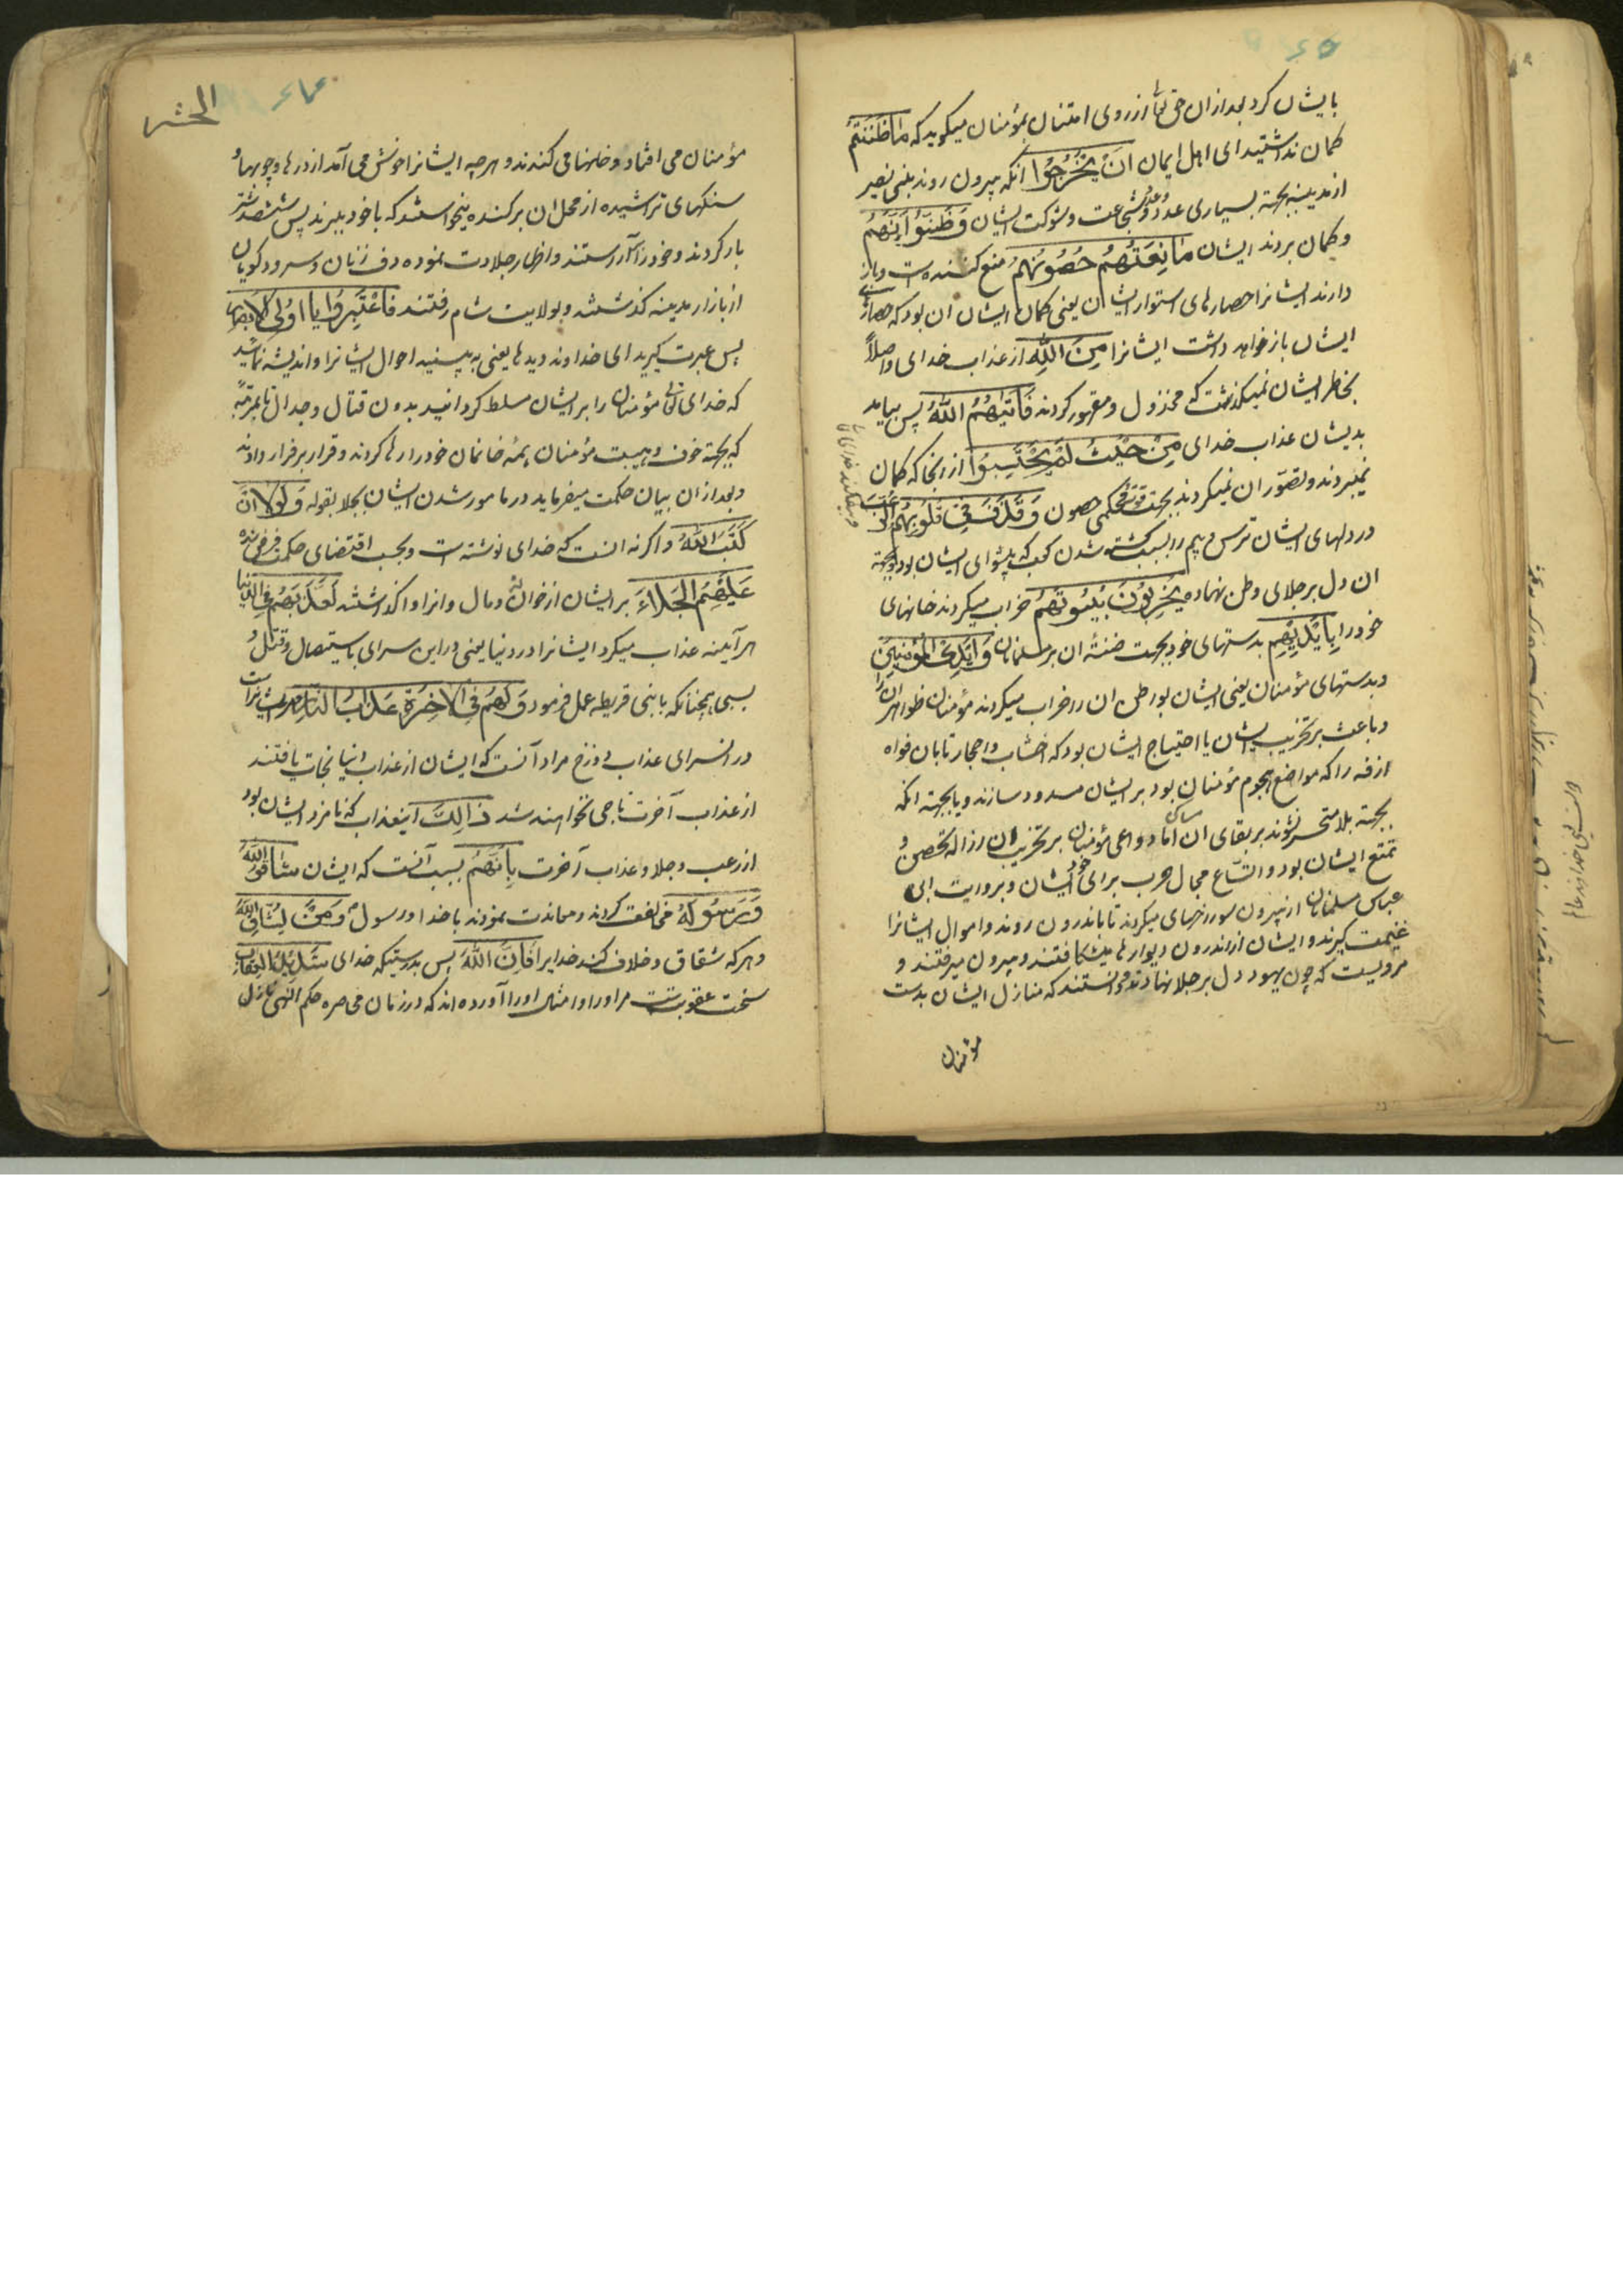 بایشان کرد بعد ازان حق تعالی از روی امتنان بمؤمنان میکوید که مَا ظَنَنتُمْ
کمان نداشتید ای اهل ایمان اَنْ یَخْرُجُوا انکه بیرون روند بنی نضیر
از مدینه بجهته بسیاری عدد و عدد و شجاعت و شوکت ایشان وَظَنُّوا اَنَّهُمْ
و کمان بردند ایشان مَانِعَتُهُمْ حُصُونُهُمْ منع کننده است و باز
دارند ایشانرا حصارهای استوار ایشان یعنی کمان ایشان ان بود که حصارهای
ایشان باز خواهد داشت ایشانرا مِنَ اللّٰهِ از عذاب خدای و اصلاً
بخاطر ایشان نمیکذشت که مخذول و مقهور کردند فَاَتٰیهُمُ اللّٰهُ پس بیامد
بدیشان عذاب خدای مِنْ حَیْثُ لَمْ یَحْتَسِبُوا از انجا که کمان
نمیبردند و تصوّر ان نمیکردند بجهت قوّت و محکمی حصون وَقَذَفَ فِی قُلُوبِهِمُ الرُّعْبَ
و بیفکند خدای تعالی
در دلهای ایشان ترس و بیم را بسبب کشته شدن کعب که پیشوای ایشان بود و بجهته
ان دل بر جلای وطن نهاده یُخْرِبُونَ بُیُوتَهُمْ خراب میکردند خانهای
خود را بِاَیْدِیهِمْ بدستهای خود بجهت ضنّهٔ ان بر مسلمانان وَاَیْدِی الْمُؤْمِنِینَ
و بدستهای مؤمنان یعنی ایشان بواطن ان را خراب میکردند و مؤمنان ظواهر ان را
و باعث بر تخریب ایشان یا احتیاج ایشان بود که اخشاب و احجار تا بان افواه
ازقه را که مواضع هجوم مؤمنان بود بر ایشان مسدود سازند و یا بجهته انکه
بجهته بلا متحسر نشوند بر بقای ان مساکن اما دواعی مؤمنان بر تخریب ان ازاله تحصن و
تمتع ایشان بود و اتساع مجال حرب برای خود ایشان و بروایت ابن
عباس مسلمانان از بیرون سور رخهای میکردند تا باندرون روند و اموال ایشانرا
غنیمت کیرند و ایشان از اندرون دیوارها میشکافتند و بیرون میرفتند و
مرویست که چون یهود دل بر جلا نهادند و دانستند که منازل ایشان بدست
مؤمنان
الحشر
مؤمنان می افتاد و خانهها می کندند و هر چه ایشانرا خوش می آمد از درها و چوبها و
سنکهای تراشیده از محل ان برکنده میخواستند که با خود ببرند پس ششصد شتر
بار کردند و خود را آراستند و اظهار جلادت نموده دف زنان و سرود کویان
از بازار مدینه کذشتند و بولایت شام رفتند فَاعْتَبِرُوا یَا اُولِی الْاَبْصَارِ
پس عبرت کیرید ای خداوند دیدها یعنی به بینید احوال ایشانرا و اندیشه نمائید
که خدای تعالی مؤمنان را بر ایشان مسلط کردانید بدون قتال و جدال تا بمرتبهٔ
که بجهته خوف و هیبت مؤمنان همه خانمان خود را رها کردند و قرار بر فرار دادند
و بعد از ان بیان حکمت میفرماید در مامور شدن ایشان بجلا بقوله وَلَوْلَا اَنْ
کَتَبَ اللّٰهُ و اکر نه انست که خدای نوشته است و بحسب اقتضای حکمت فرض شده
عَلَیْهِمُ الْجَلَاءَ بر ایشان از خوان و مال و انرا واکذاشتند لَعَذَّبَهُمْ فِی الدُّنْیَا
هر آینه عذاب میکرد ایشانرا در دنیا یعنی در این سرای باستیصال و قتل و
سبی همچنانکه با بنی قریظه عمل فرمود وَلَهُمْ فِی الْاٰخِرَةِ عَذَابُ النَّارِ و مر ایشانراست
در انسرای عذاب دوزخ مراد آنست که ایشان از عذاب دنیا نجات یافتند
از عذاب آخرت ناجی نخواهند شد ذٰالِکَ اینعذاب که نامزد ایشان بود
از رعب و جلا و عذاب آخرت بِاَنَّهُمْ بسبب آنست که ایشان شَاقُّوا اللّٰهَ
وَرَسُولَهُ مخالفت کردند و معاندت نمودند با خدا و رسول او وَمَنْ یُشَاقِّ اللّٰهَ
و هر که شقاق و خلاف کند خدایرا فَاِنَّ اللّٰهَ پس بدرستیکه خدای شَدِیدُ الْعِقَابِ
سخت عقوبتست مر او را و امثال او را آورده اند که در زمان محاصره حکم الهی نازل